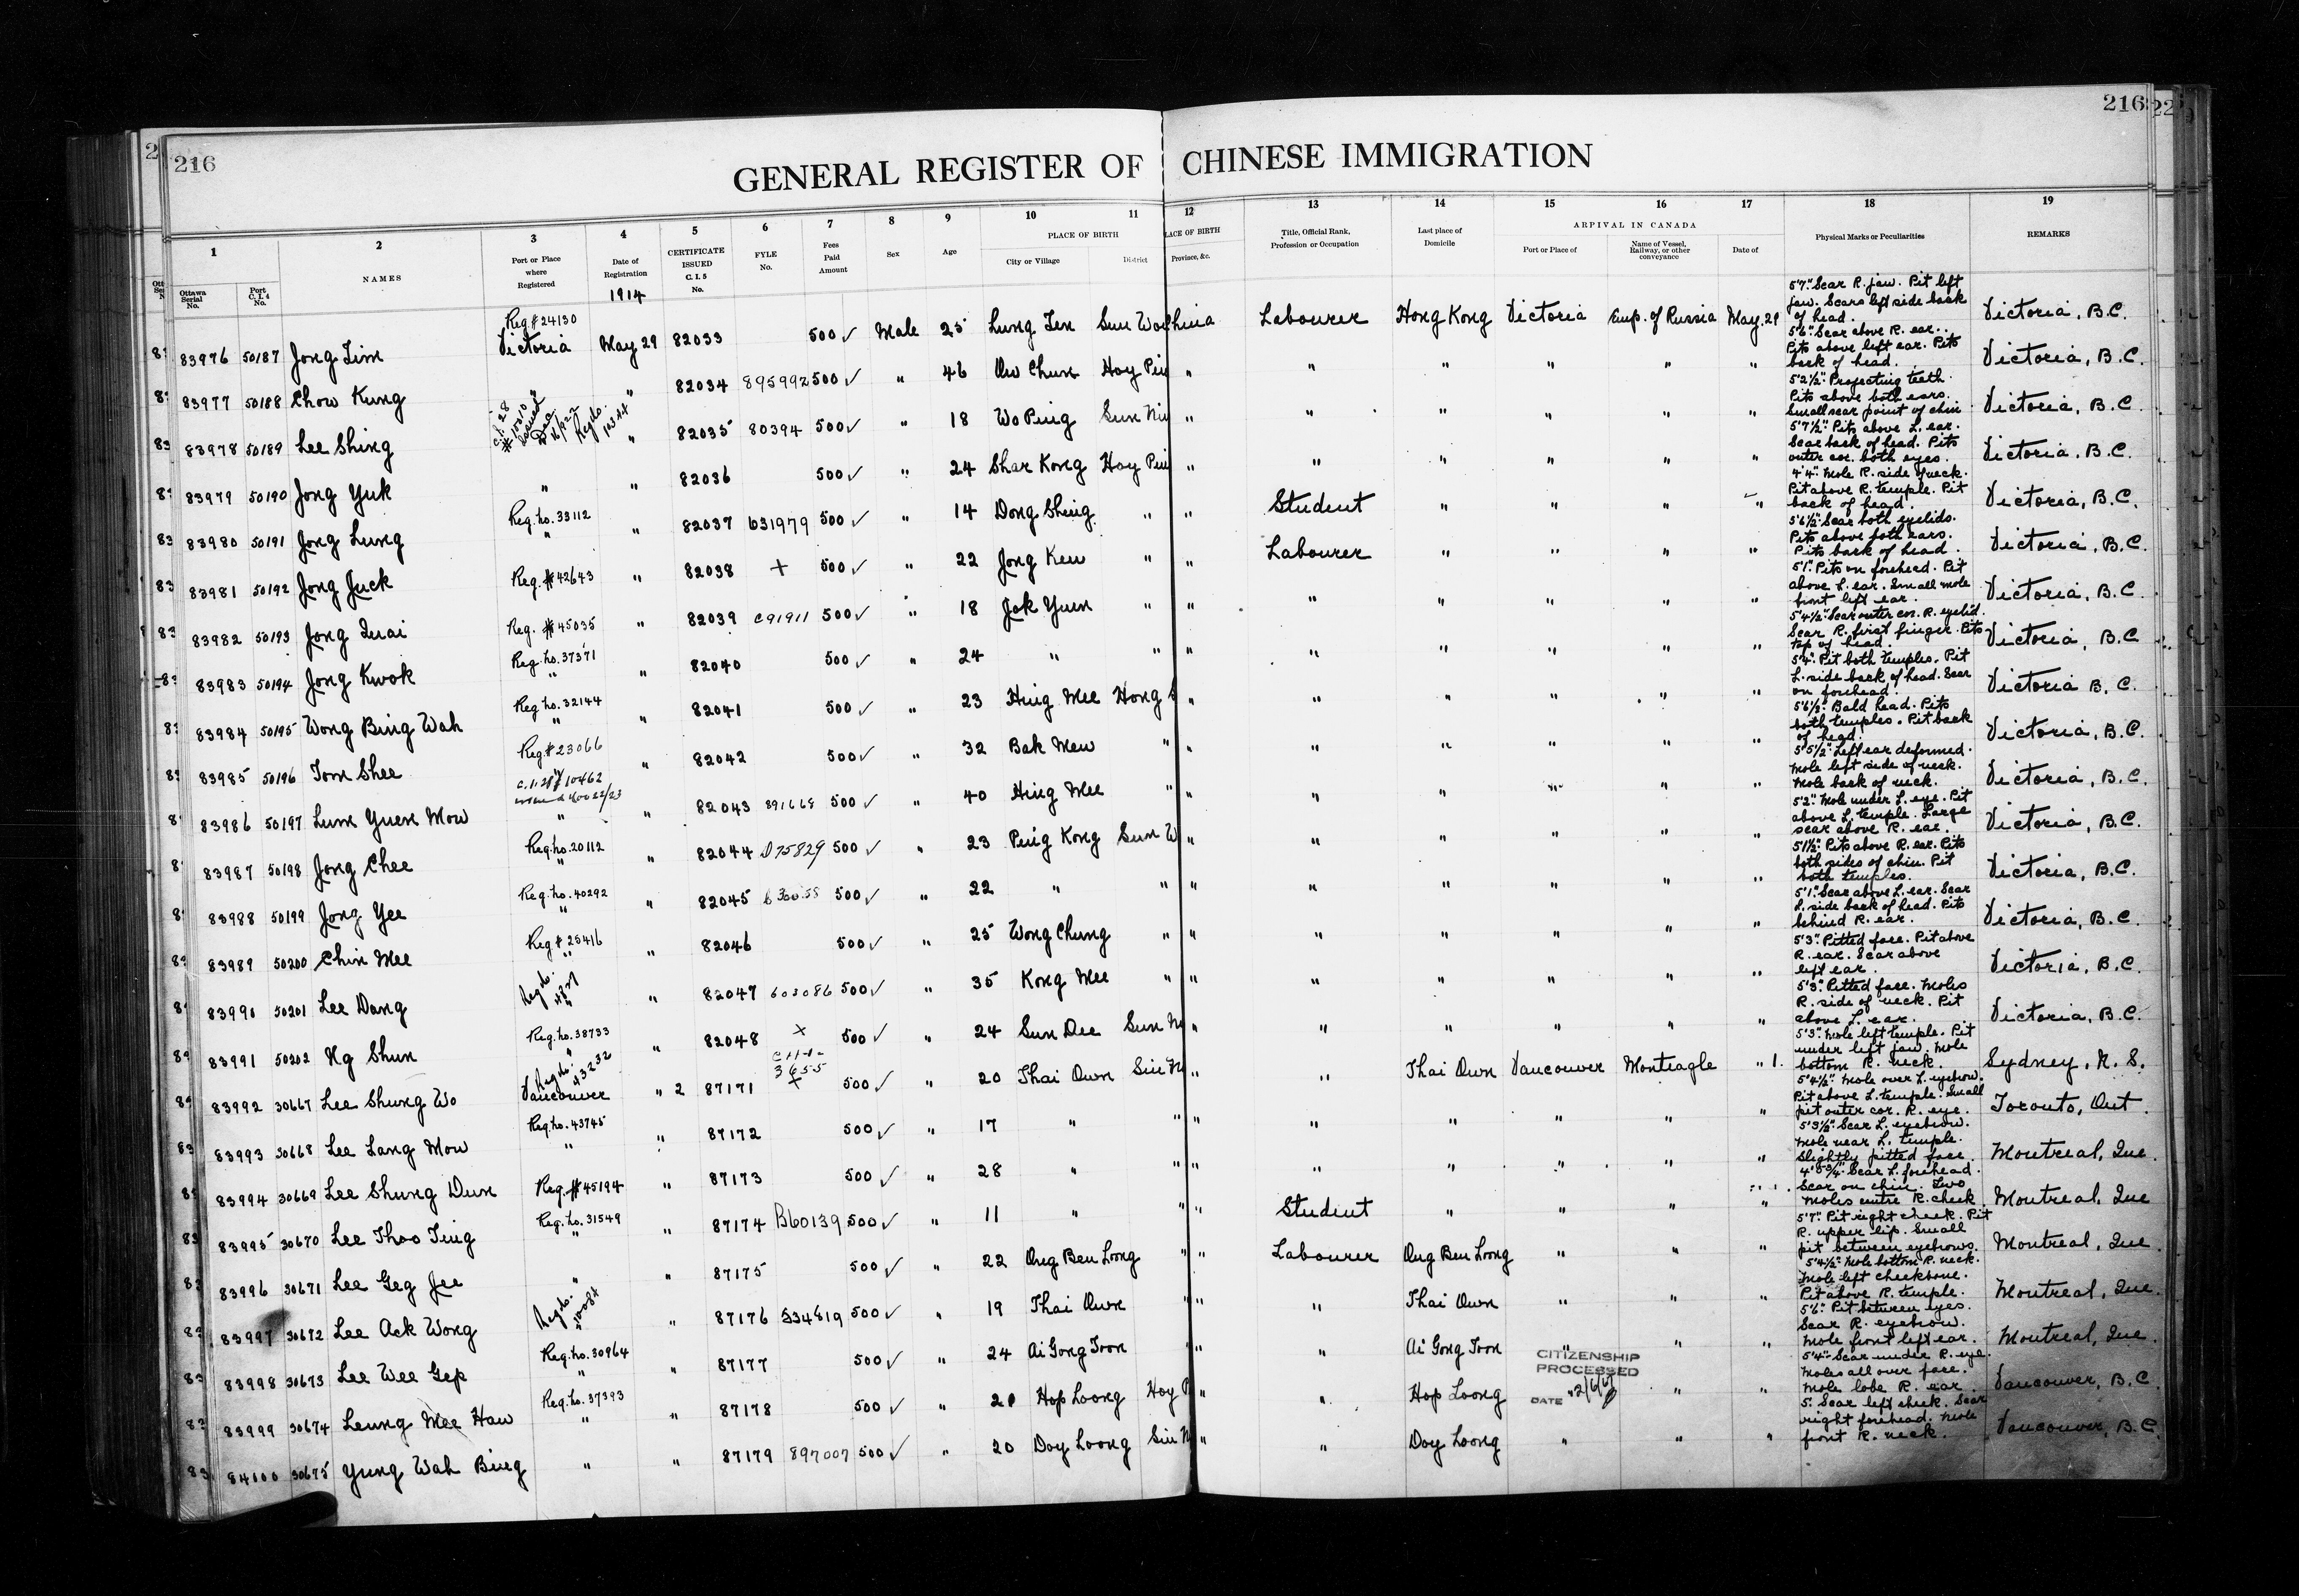 216
216
GENERAL REGISTER OF CHINESE IMMIGRATION
1 2 3 4 5 6 7 8 9 10 11 12 13 14 15 16 17 18 19
Ottawa Serial No. Port C.I.4 No. NAMES Port or Place where Registered Date of Registration CERTIFICATE ISSUED C.I.5 No. FYLE No. Fees Paid Amount Sex Age PLACE OF BIRTH City or Village District PLACE OF BIRTH Province, &c. Title, Official Rank, Profession or Occupation Last place of Domicile ARRIVAL IN CANADA Port or Place of Name of Vessel, Railway, or other conveyance Date of Physical Marks or Peculiarities REMARKS
1914
83976 50187 Jong Tim Reg. # 24130 Victoria May 29 82033 500 ✓ Male 25 Lung Ten Sun Woi China Labourer Hong Kong Victoria Emp. of Russia May. 29 5'7". Scar R. jaw. Pit left jaw. Scars left side back of head. Victoria, B.C.
83977 50188 Chow Kung " " 82034 895992 500 ✓ " 46 Ow Chun Hoy Pin " " " " " " 5'6". Scar above R. ear. Pits above left ear. Pits back of head. Victoria, B.C.
83978 50189 Lee Shing " 82035 80394 500 ✓ " 18 Wo Ping Sun Nin " " " " " " 5'2½". Projecting teeth. Pits above both ears. Small scar point of chin. Victoria, B.C.
83979 50190 Jong Yuk " " 82036 500 ✓ " 24 Shar Kong Hoy Pin " " " " " " 5'7½". Pits above L. ear. Scar back of head. Pits outer cor. both eyes. Victoria, B.C.
83980 50191 Jong Lung Reg. No. 33112 " " 82037 631979 500 ✓ " 14 Dong Shing " " Student " " " " 4'4". Mole R. side of neck. Pit above R. temple. Pit back of head. Victoria, B.C.
83981 50192 Jong Juck Reg. # 42643 " 82038 + 500 ✓ " 22 Jong Kew " " Labourer " " " " 5'6½". Scar both eyelids. Pits above both ears. Pits back of head. Victoria, B.C.
83982 50193 Jong Quai Reg. # 45035 " 82039 C91911 500 ✓ " 18 Jok Yuen " " " " " " " 5'1". Pits on forehead. Pit above L. ear. Small mole front left ear. Victoria, B.C.
83983 50194 Jong Kwok Reg. No. 37371 " " 82040 500 ✓ " 24 " " " " " " " " 5'4½". Scar outer cor. R. eyelid. Scar R. first finger. Pits top of head. Victoria, B.C.
83984 50195 Wong Bing Wah Reg. No. 32144 " " 82041 500 ✓ " 23 Hing Mee Hong " " " " " " 5'4". Pit both temples. Pit L. side back of head. Scar on forehead. Victoria B.C.
83985 50196 Tom Shee Reg. # 23066 " 82042 500 ✓ " 32 Bak Mew " " " " " " " 5'6½". Bald head. Pits both temples. Pit back of head. Victoria, B.C.
83986 50197 Lum Yuen Mow " " 82043 891668 500 ✓ " 40 Hing Mee " " " " " " " 5'5½". Left ear deformed. Mole left side of neck. Mole back of neck. Victoria, B.C.
83987 50198 Jong Chee Reg. No. 20112 " " 82044 D75829 500 ✓ " 23 Ping Kong Sun W " " " " " " 5'2". Mole under L. eye. Pit above L. temple. Large scar above R. ear. Victoria, B.C.
83988 50199 Jong Yee Reg. No. 40292 " " 82045 500 ✓ " 22 " " " " " " " " 5'1½". Pits above R. ear. Pits both sides of chin. Pit both temples. Victoria, B.C.
83989 50200 Chin Mee Reg. # 25416 " " 82046 500 ✓ " 25 Wong Chung " " " " " " " 5'1". Scar above L. ear. Scar L. side back of head. Pits behind R. ear. Victoria, B.C.
83990 50201 Lee Dang Reg. No. " " 82047 603086 500 ✓ " 35 Kong Mee " " " " " " " 5'3". Pitted face. Pit above R. ear. Scar above left ear. Victoria, B.C.
83991 50202 Ng Shun Reg. No. 38733 " " 82048 + 500 ✓ " 24 Sun Dee Sun N " " " " " " 5'3". Pitted face. Moles R. side of neck. Pit above L. ear. Victoria, B.C.
83992 30667 Lee Shung Wo Reg. No. 43232 Vancouver " 2 87171 + 500 ✓ " 20 Thai Own Sin N " " Thai Own Vancouver Monteagle " 1. 5'3". Mole left temple. Pit under left jaw. Mole bottom R. neck. Sydney, N.S.
83993 30668 Lee Lang Mow Reg. No. 43745 " " 87172 500 ✓ " 17 " " " " " " " " 5'4½". Mole over L. eyebrow. Pit above L. temple. Small pit outer cor. R. eye. Toronto, Ont.
83994 30669 Lee Shung Dun Reg. # 45194 " 87173 500 ✓ " 28 " " " " " " " " 5'3½". Scar L. eyebrow. Mole near L. temple. Slightly pitted face. Montreal, Que.
83995 30670 Lee Thoo Ting Reg. No. 31549 " " 87174 B60139 500 ✓ " 11 " " " Student " " " " 4'8¾". Scar L. forehead. Scar on chin. Two moles centre R. cheek. Montreal, Que
83996 30671 Lee Geg Jee " " 87175 500 ✓ " 22 Ong Ben Loong " " Labourer Ong Ben Loong " " " 5'7". Pit right cheek. Pit R. upper lip. Small pit between eyebrows. Montreal, Que.
83997 30672 Lee Ack Wong Reg. No. " 87176 534819 500 ✓ " 19 Thai Own " " " Thai Own " " " 5'4½". Mole bottom R. neck. Mole left cheekbone. Pit above R. temple. Montreal, Que.
83998 30673 Lee Wee Gep Reg. No. 30964 " " 87177 500 ✓ " 24 Ai Gong Toon " " " Ai Gong Toon " " " 5'6". Pit between eyes. Scar R. eyebrow. Mole front left ear. Montreal, Que.
83999 30674 Leung Mee Haw Reg. No. 37393 " " 87178 500 ✓ " 20 Hop Loong Hoy P " " Hop Loong " " " 5'4". Scar under R. eye. Moles all over face. Mole lobe R. ear. Vancouver, B.C.
CITIZENSHIP PROCESSED DATE
84100 30675 Yung Wah Bing " " 87179 897007 500 ✓ " 20 Doy Loong Sin N " " Doy Loong " " " 5'. Scar left cheek. Scar right forehead. Mole front R. neck. Vancouver, B.C.